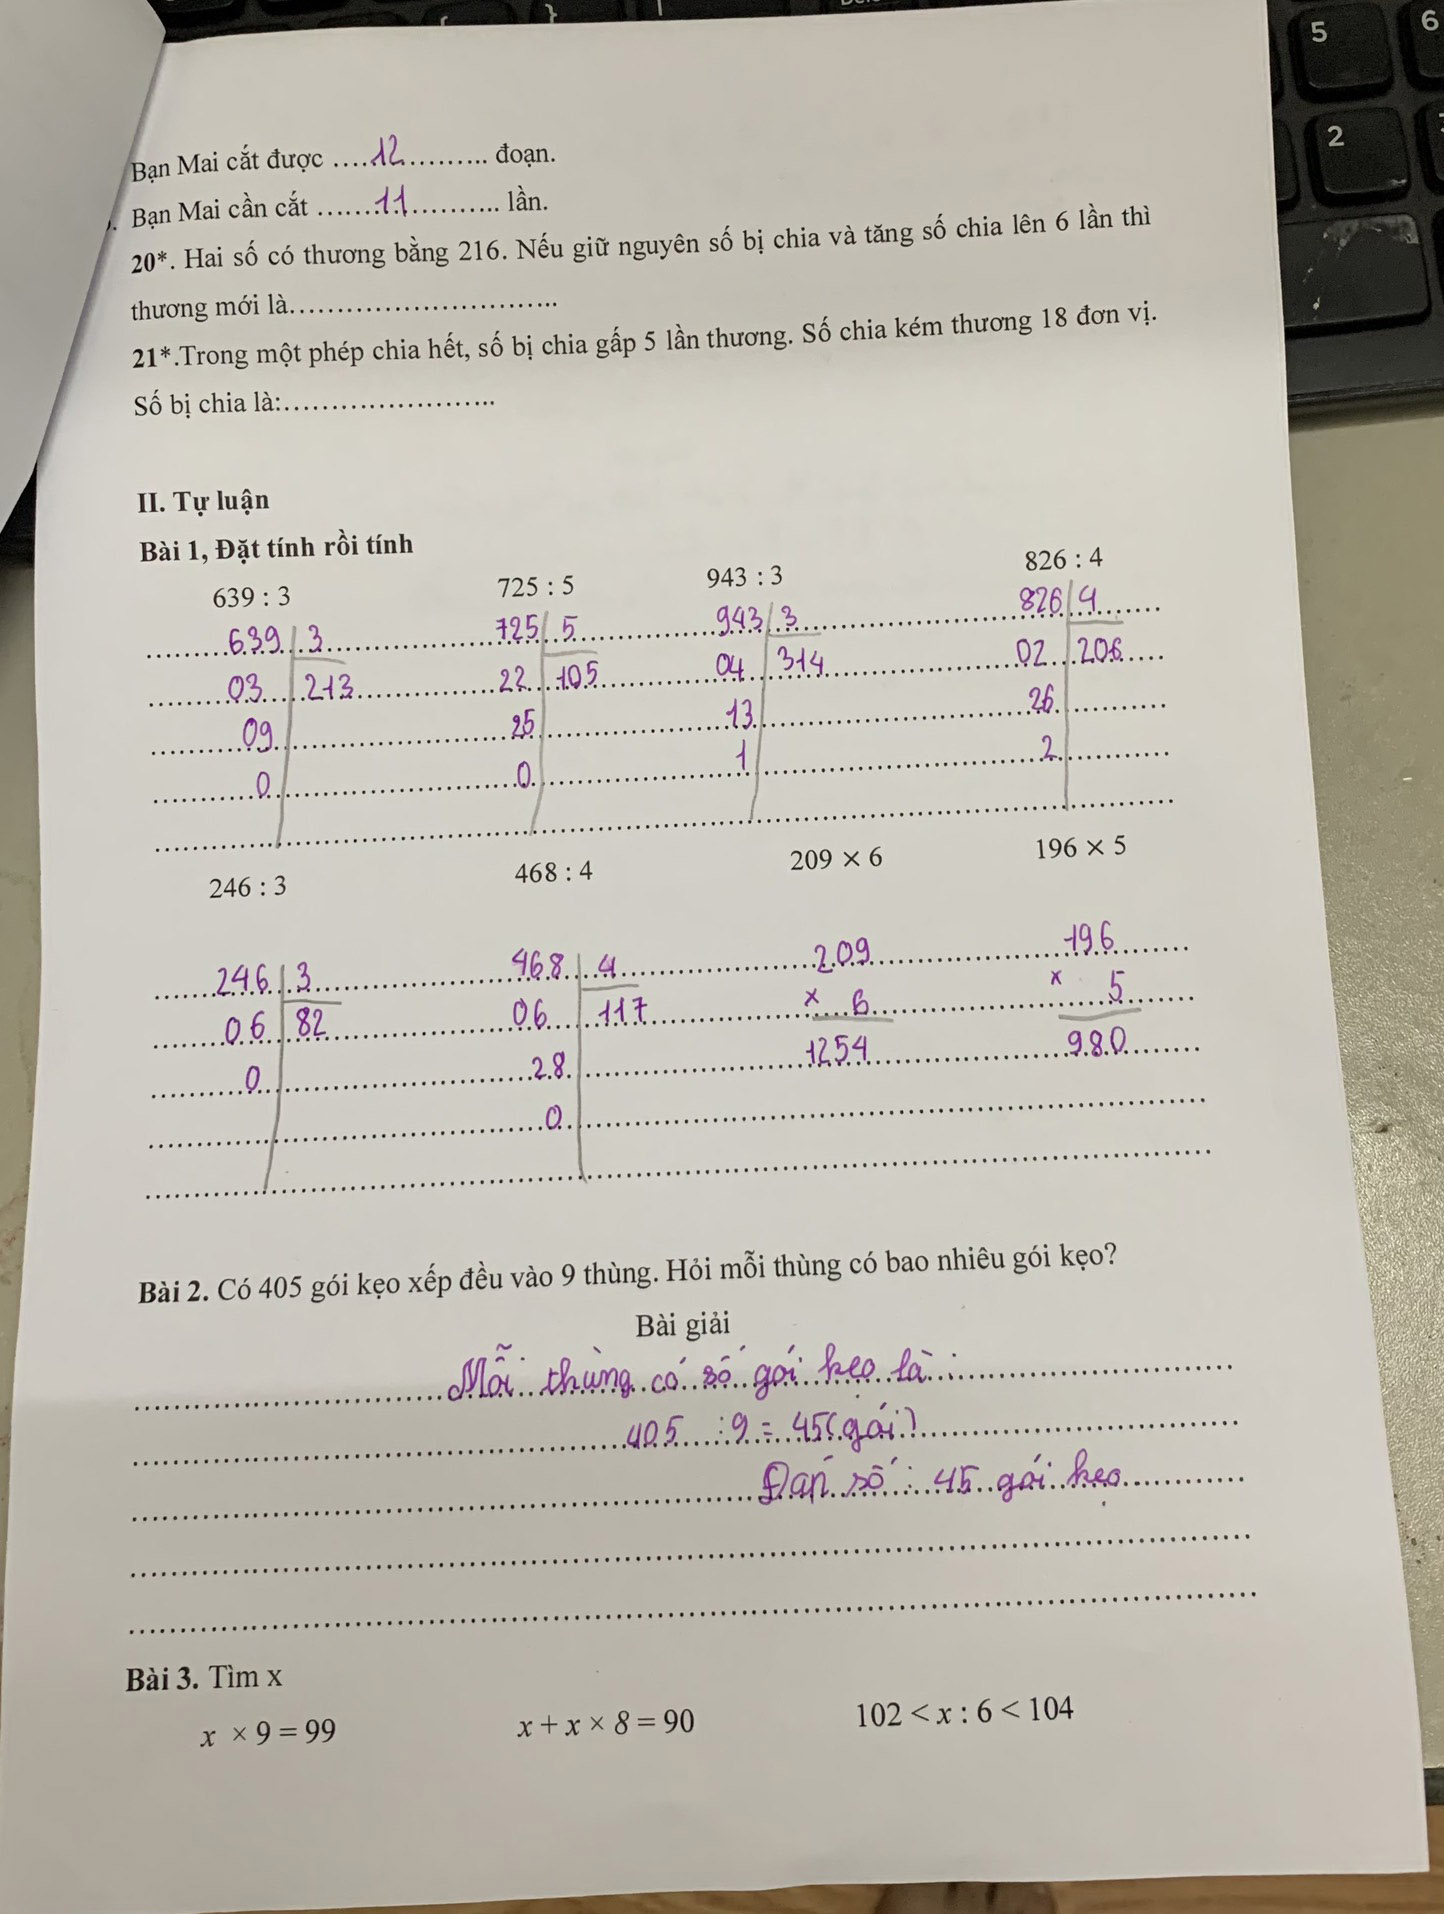 5
6
2
Bạn Mai cắt được ....12........... đoạn.
Bạn Mai cần cắt .......11........... lần.
20*. Hai số có thương bằng 216. Nếu giữ nguyên số bị chia và tăng số chia lên 6 lần thì
thương mới là..............................
21*.Trong một phép chia hết, số bị chia gấp 5 lần thương. Số chia kém thương 18 đơn vị.
Số bị chia là:........................
II. Tự luận
Bài 1, Đặt tính rồi tính
639 : 3 725 : 5 943 : 3 826 : 4
639 3 725 5 943 3 826 4
03 213 22 105 04 314 02 206
09 25 13 26
0 0 1 2
246 : 3 468 : 4 209 × 6 196 × 5
246 3 468 4 209 196
06 82 06 117 × 6 × 5
0 28 1254 980
0
Bài 2. Có 405 gói kẹo xếp đều vào 9 thùng. Hỏi mỗi thùng có bao nhiêu gói kẹo?
Bài giải
Mỗi thùng có số gói kẹo là :
405 : 9 = 45 (gói)
Đáp số : 45 gói kẹo
Bài 3. Tìm x
x × 9 = 99 x + x × 8 = 90 102 < x : 6 < 104